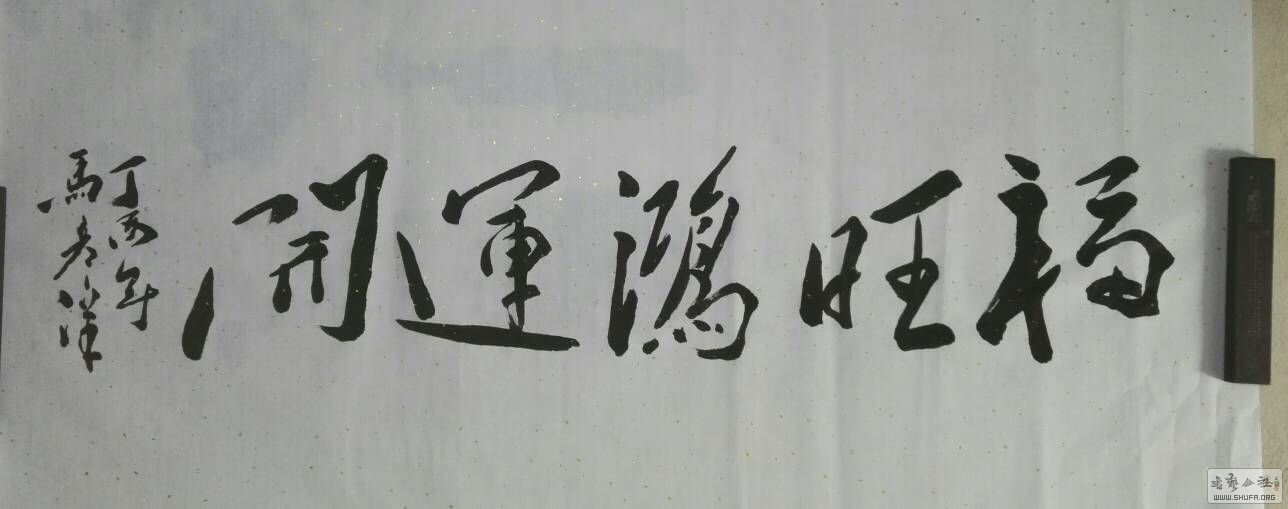 福旺鴻運開
丁酉年
馬
书艺公社
WWW.SHUFA.ORG